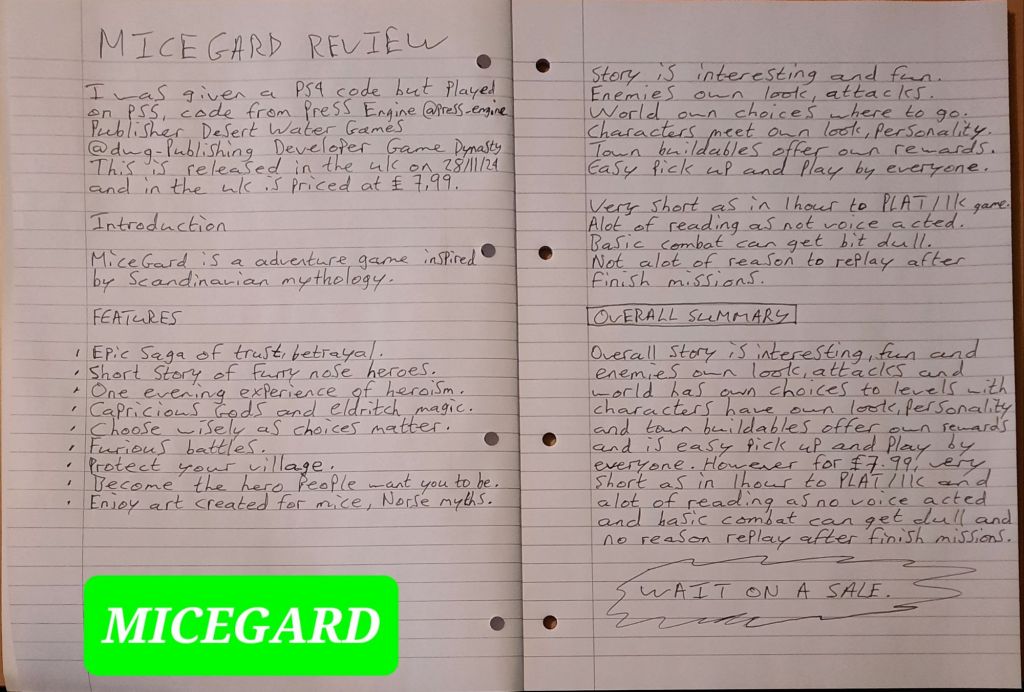 MICEGARD REVIEW
I was given a PS4 code but Played
on PS5, code from Press Engine @Press_engine
Publisher Desert Water Games
@dwg-Publishing Developer Game Dynasty
This is released in the uk on 28/11/24
and in the uk is Priced at £7,99.
Introduction
MiceGard is a adventure game inspired
by Scandinavian mythology.
FEATURES
• Epic Saga of trust, betrayal.
• Short Story of furry nose heroes.
• One evening experience of heroism.
• Capricious Gods and eldritch magic.
• Choose wisely as choices matter.
• Furious battles.
• Protect your village.
• Become the hero People want you to be.
• Enjoy art created for mice, Norse myths.
MICEGARD
Story is interesting and fun.
Enemies own look, attacks.
World own choices where to go.
Characters meet own look, Personality.
Town buildables offer own rewards.
Easy Pick up and Play by everyone.
Very Short as in 1hour to PLAT/1k game.
Alot of reading as not voice acted.
Basic combat can get bit dull.
Not alot of reason to replay after
finish missions.
OVERALL SUMMARY
Overall Story is interesting, fun and
enemies own look, attacks and
world has own choices to levels with
characters have own look, Personality
and town buildables offer own rewards
and is easy Pick up and Play by
everyone. However for £7.99, very
Short as in 1hour to PLAT/1k and
alot of reading as no voice acted
and basic combat can get dull and
no reason replay after finish missions.
WAIT ON A SALE.